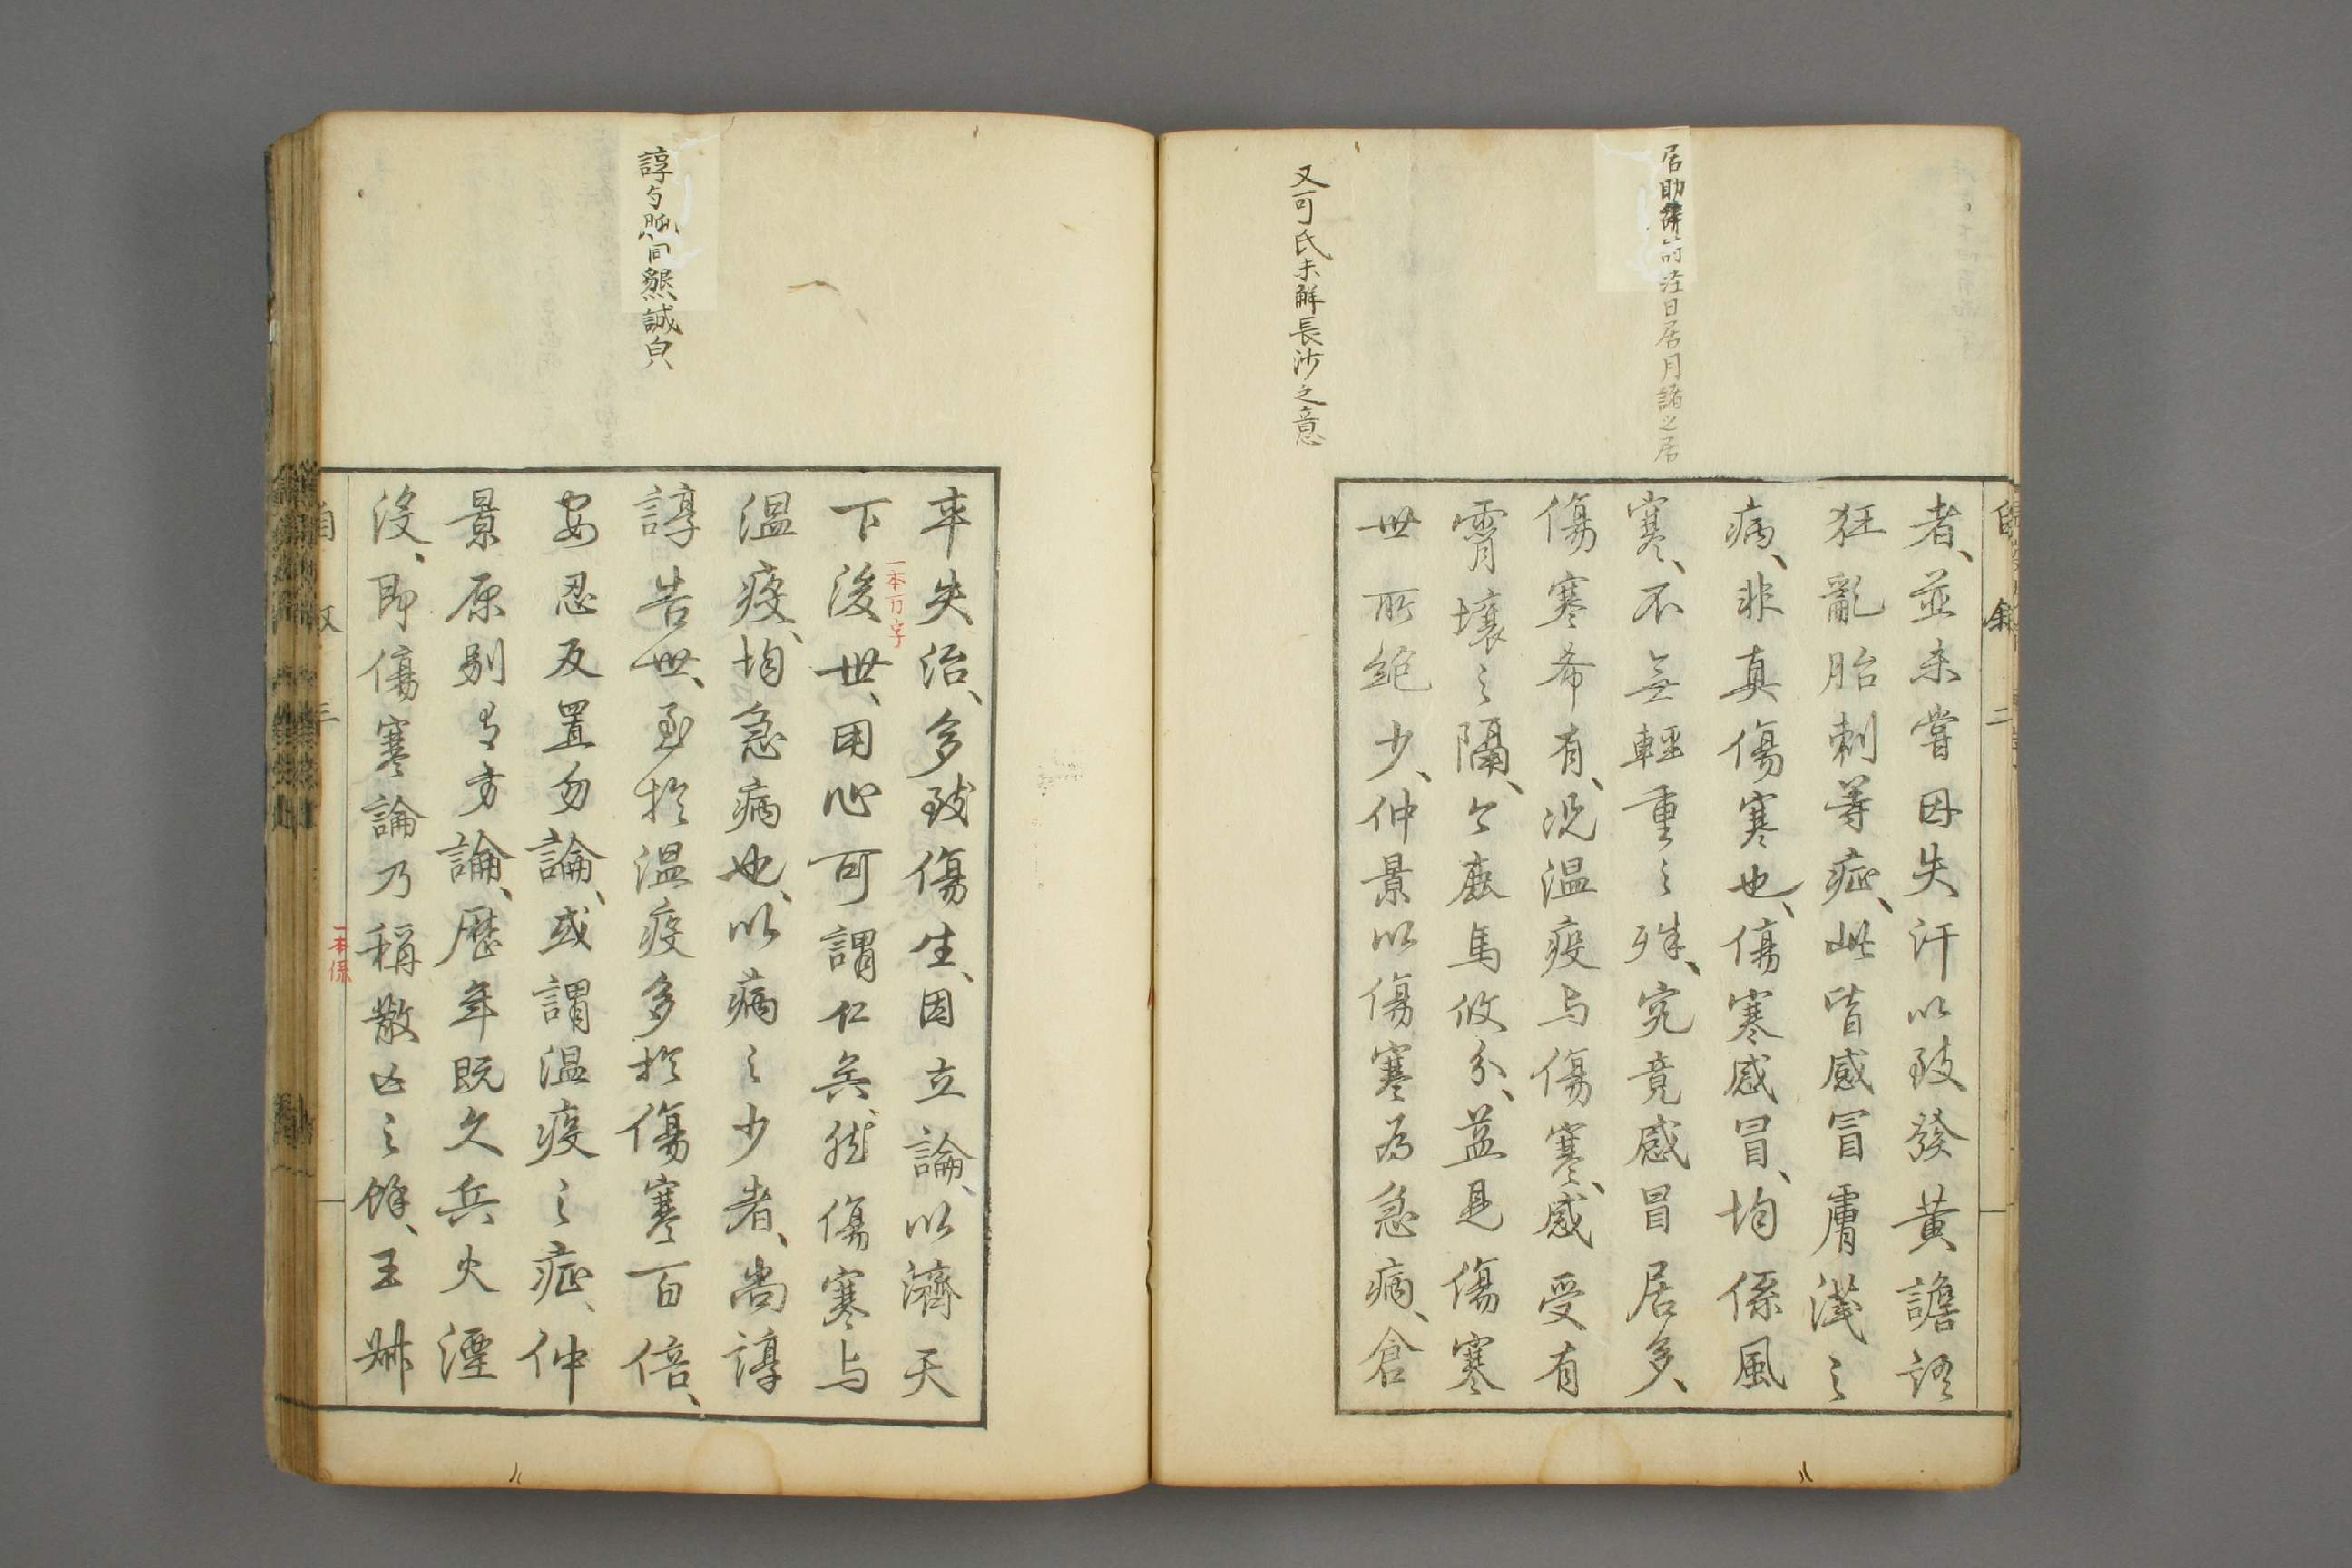 居助辞前注日居月諸之居
又可氏未解長沙之意
自敘 二
者、並未嘗因失汗以致發黃譫語
狂亂胎刺等症、此皆感冒膚淺之
病、非真傷寒也、傷寒感冒、均係風
寒、不無輕重之殊、究竟感冒居多、
傷寒希有、況温疫与傷寒、感受有
霄壤之隔、今鹿馬攸分、益見傷寒
世所絶少、仲景以傷寒為急病、倉
諄勺 同懇誠皃
卒失治、多致傷生、因立論、以濟天
下後世、用心可謂仁矣、然傷寒与
一本万字
温疫、均急病也、以病之少者、尚諄
諄告世、至於温疫多於傷寒百倍、
安忍反置勿論、或謂温疫之症、仲
景原別有方論、歴年既久兵火湮
没、即傷寒論乃稱散亡之餘、王叔
一本係
自叙 三